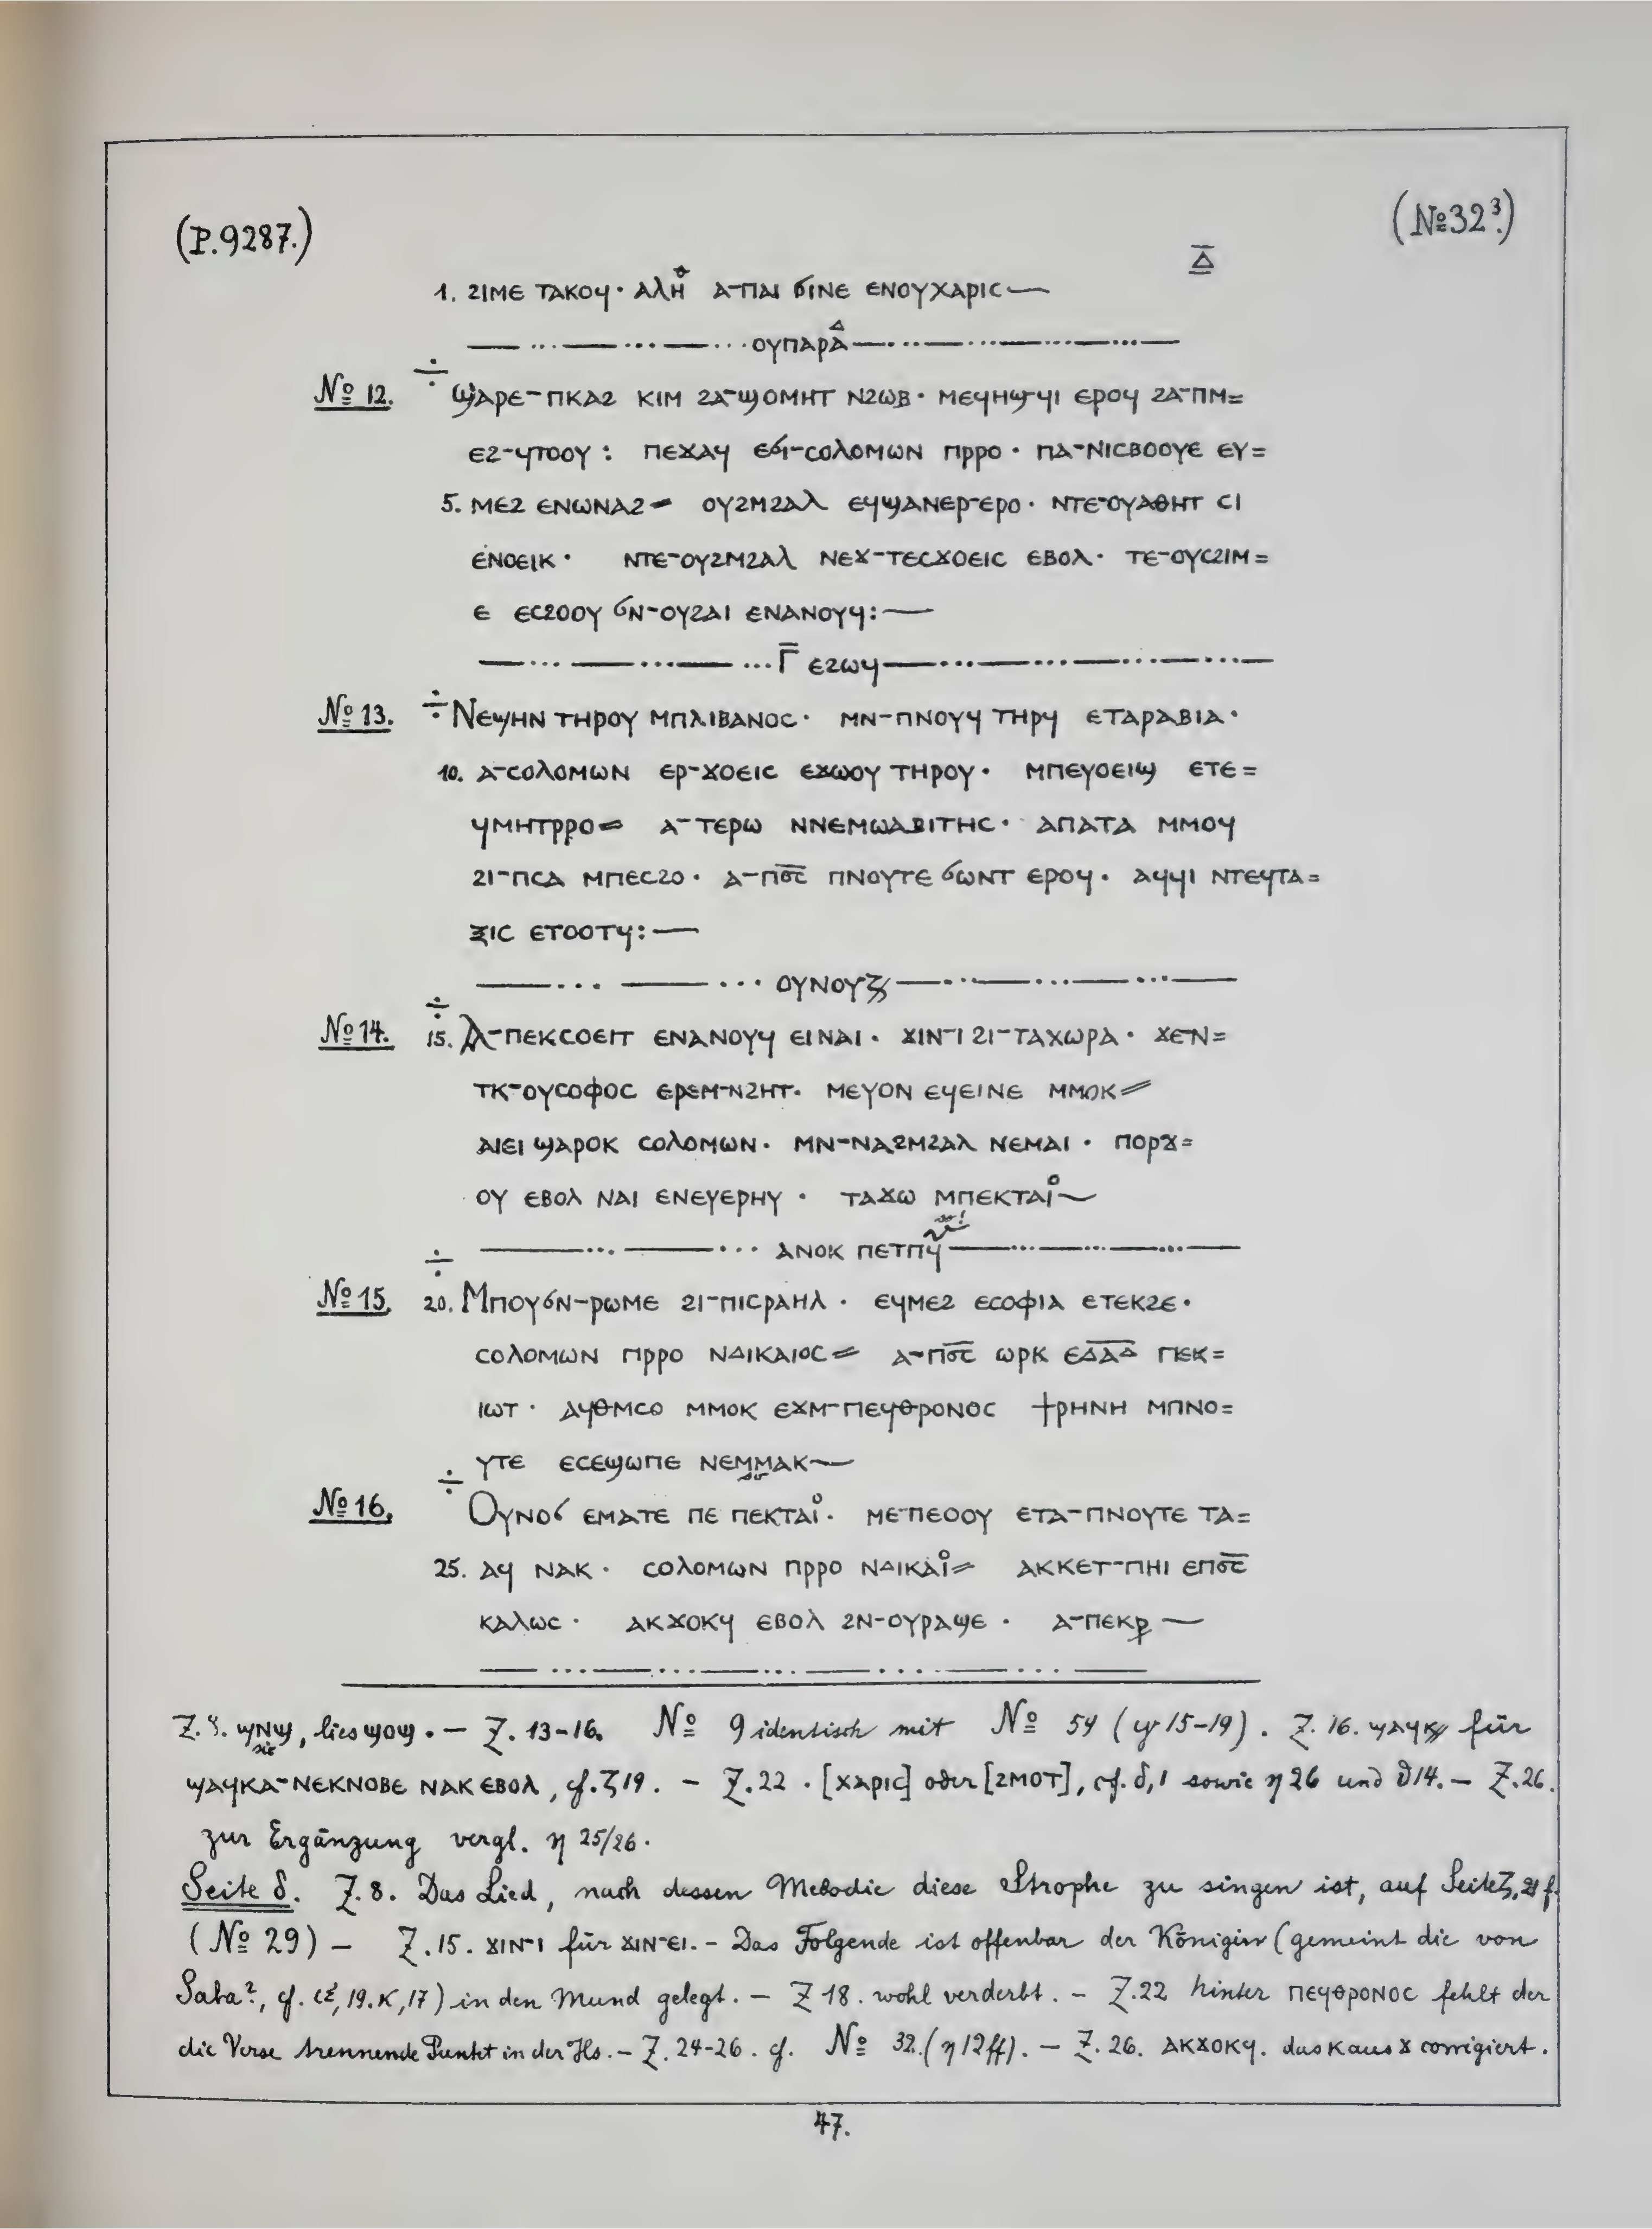 (P.9287.) (№32³.)
Δ̅
1. ϩⲓⲙⲉ ⲧⲁⲕⲟϥ· ⲁⲗⲏ ⲁ-ⲡⲁⲓ ϭⲓⲛⲉ ⲉⲛⲟⲩⲭⲁⲣⲓⲥ—
ⲟⲩⲡⲁⲣⲁ
№ 12. ϣⲁⲣⲉ-ⲡⲕⲁϩ ⲕⲓⲙ ϩⲁ-ϣⲟⲙⲏⲧ ⲛϩⲱⲃ· ⲙⲉϥⲏϣϥⲓ ⲉⲣⲟϥ ϩⲁ-ⲡⲙ=
ⲉϩ-ϥⲧⲟⲟⲩ : ⲡⲉϫⲁϥ ⲉϭⲓ-ⲥⲟⲗⲟⲙⲱⲛ ⲡⲣⲣⲟ · ⲡⲁ-ⲛⲓⲥⲃⲟⲟⲩⲉ ⲉⲩ=
5. ⲙⲉϩ ⲉⲛⲱⲛⲁϩ= ⲟⲩϩⲙϩⲁⲗ ⲉϥϣⲁⲛⲉⲣ-ⲉⲣⲟ· ⲛⲧⲉ-ⲟⲩⲁⲑⲏⲧ ⲥⲓ
ⲉⲛⲟⲉⲓⲕ· ⲛⲧⲉ-ⲟⲩϩⲙϩⲁⲗ ⲛⲉϫ-ⲧⲉⲥϫⲟⲉⲓⲥ ⲉⲃⲟⲗ· ⲧⲉ-ⲟⲩⲥϩⲓⲙ=
ⲉ ⲉⲥϩⲟⲟⲩ ϭⲛ-ⲟⲩϩⲁⲓ ⲉⲛⲁⲛⲟⲩϥ:—
Ⲅ̅ ⲉϩⲱϥ
№ 13. Ⲛⲉϣⲏⲛ ⲧⲏⲣⲟⲩ ⲙⲡⲗⲓⲃⲁⲛⲟⲥ· ⲙⲛ-ⲡⲛⲟⲩϥ ⲧⲏⲣϥ ⲉⲧⲁⲣⲁⲃⲓⲁ·
10. ⲁ-ⲥⲟⲗⲟⲙⲱⲛ ⲉⲣ-ϫⲟⲉⲓⲥ ⲉϫⲱⲟⲩ ⲧⲏⲣⲟⲩ· ⲙⲡⲉⲩⲟⲉⲓϣ ⲉⲧⲉ=
ϥⲙⲏⲧⲣⲣⲟ= ⲁ-ⲧⲉⲣⲱ ⲛⲛⲉⲙⲱⲁⲃⲓⲧⲏⲥ· ⲁⲡⲁⲧⲁ ⲙⲙⲟϥ
ϩⲓ-ⲡⲥⲁ ⲙⲡⲉⲥϩⲟ· ⲁ-ⲡϭ̅ⲥ̅ ⲡⲛⲟⲩⲧⲉ ϭⲱⲛⲧ ⲉⲣⲟϥ· ⲁϥϥⲓ ⲛⲧⲉϥⲧⲁ=
ⲝⲓⲥ ⲉⲧⲟⲟⲧϥ:—
ⲟⲩⲛⲟⲩ
№ 14. 15. Ⲁ-ⲡⲉⲕⲥⲟⲉⲓⲧ ⲉⲛⲁⲛⲟⲩϥ ⲉⲓ ⲛⲁⲓ· ϫⲓⲛ-ⲓ ϩⲓ-ⲧⲁⲭⲱⲣⲁ· ϫⲉ-ⲛ=
ⲧⲕ-ⲟⲩⲥⲟⲫⲟⲥ ⲉⲣⲉⲙ-ⲛϩⲏⲧ· ⲙⲉⲩⲟⲛ ⲉϥⲉⲓⲛⲉ ⲙⲙⲟⲕ=
ⲁⲓⲉⲓ ϣⲁⲣⲟⲕ ⲥⲟⲗⲟⲙⲱⲛ· ⲙⲛ-ⲛⲁϩⲙϩⲁⲗ ⲛⲉⲙⲁⲓ· ⲡⲟⲣϫ=
ⲟⲩ ⲉⲃⲟⲗ ⲛⲁⲓ ⲉⲛⲉⲩⲉⲣⲏⲩ · ⲧⲁϫⲱ ⲙⲡⲉⲕⲧⲁⲓ°—
ⲁⲛⲟⲕ ⲡⲉⲧⲡϥ
№ 15. 20. Ⲙⲡⲟⲩϭⲛ-ⲣⲱⲙⲉ ϩⲓ-ⲡⲓⲥⲣⲁⲏⲗ · ⲉϥⲙⲉϩ ⲉⲥⲟⲫⲓⲁ ⲉⲧⲉⲕϩⲉ·
ⲥⲟⲗⲟⲙⲱⲛ ⲡⲣⲣⲟ ⲛⲇⲓⲕⲁⲓⲟⲥ= ⲁ-ⲡϭ̅ⲥ̅ ⲱⲣⲕ ⲉⲇ̅ⲁ̅ⲇ̅ ⲡⲉⲕ=
ⲓⲱⲧ · ⲁϥⲑⲙⲥⲟ ⲙⲙⲟⲕ ⲉϫⲙ-ⲡⲉϥⲑⲣⲟⲛⲟⲥ ϯⲣⲏⲛⲏ ⲙⲡⲛⲟ=
ⲩⲧⲉ ⲉⲥⲉϣⲱⲡⲉ ⲛⲉⲙⲙⲁⲕ—
№ 16. Ⲟⲩⲛⲟϭ ⲉⲙⲁⲧⲉ ⲡⲉ ⲡⲉⲕⲧⲁⲓ°· ⲙⲉ-ⲡⲉⲟⲟⲩ ⲉⲧⲁ-ⲡⲛⲟⲩⲧⲉ ⲧⲁ=
25. ⲁϥ ⲛⲁⲕ· ⲥⲟⲗⲟⲙⲱⲛ ⲡⲣⲣⲟ ⲛⲇⲓⲕⲁⲓ°= ⲁⲕⲕⲉⲧ-ⲡⲏⲓ ⲉⲡϭ̅ⲥ̅
ⲕⲁⲗⲱⲥ· ⲁⲕϫⲟⲕϥ ⲉⲃⲟⲗ ϩⲛ-ⲟⲩⲣⲁϣⲉ · ⲁ-ⲡⲉⲕⲣ—
Z. 8. ϣⲛϣ, lies ϣⲟϣ. — Z. 13-16. № 9 identisch mit № 54 (ψ 15-19). Z. 16. ϣⲁϥⲕ für
sic
ϣⲁϥⲕⲁ-ⲛⲉⲕⲛⲟⲃⲉ ⲛⲁⲕ ⲉⲃⲟⲗ, cf. ζ 19. — Z. 22. [ⲭⲁⲣⲓⲥ] oder [ϩⲙⲟⲧ], cf. δ, 1 sowie η 26 und ϑ 14. — Z. 26.
zur Ergänzung vergl. η 25/26.
Seite δ. Z. 8. Das Lied, nach dessen Melodie diese Strophe zu singen ist, auf Seite ζ, 21 f.
(№ 29) — Z. 15. ϫⲓⲛ-ⲓ für ϫⲓⲛ-ⲉⲓ. - Das Folgende ist offenbar der Königin (gemeint die von
Saba?, cf. ιε, 19. κ, 17) in den Mund gelegt. — Z 18. wohl verderbt. - Z. 22 hinter ⲡⲉϥⲑⲣⲟⲛⲟⲥ fehlt der
die Verse trennende Punkt in der Hs. — Z. 24-26. cf. № 32. (η 12 ff). — Z. 26. ⲁⲕϫⲟⲕϥ. das ⲕ aus ϫ corrigiert.
47.